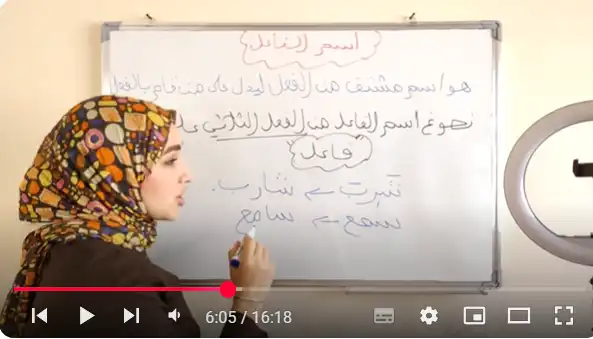 اسم الفاعل
هو اسم مشتق من الفعل ليدل على من قام بالفعل
نصوغ اسم الفاعل من الفعل الثلاثي على
فاعل
شرب ← شارب.
سمع ← سامع
6:05 / 16:18